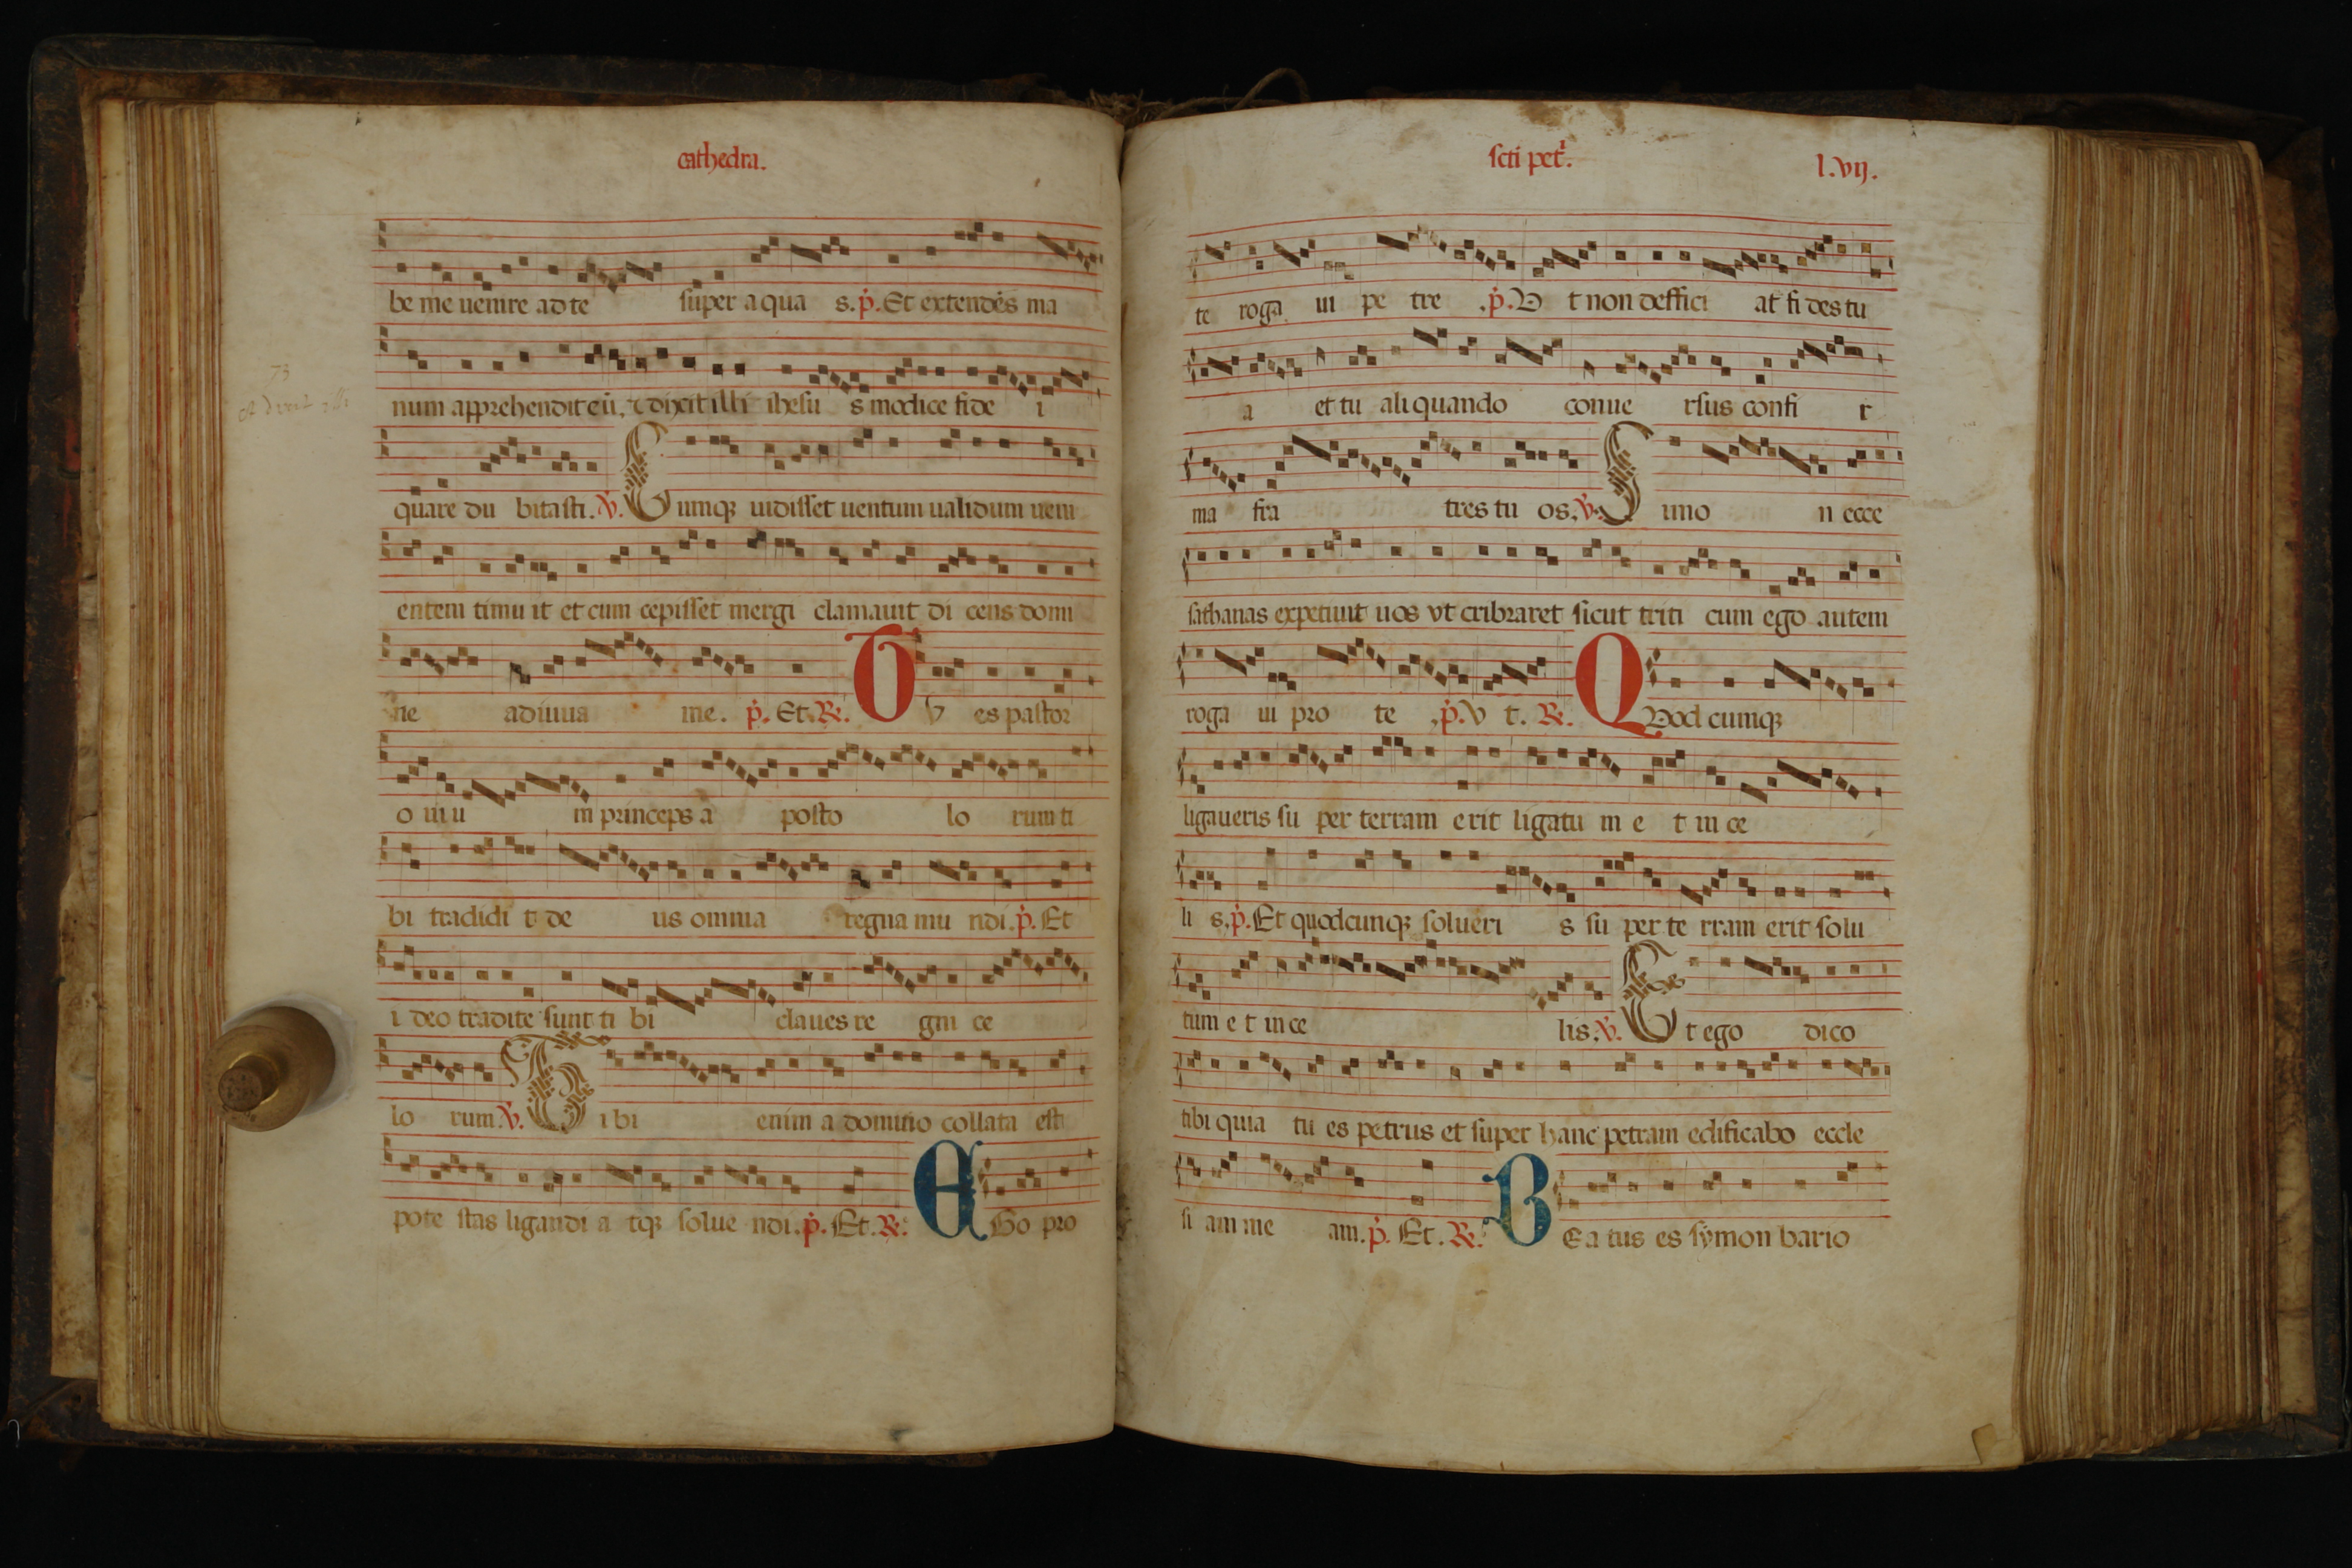 cathedra.
be me uenire ad te super aqua s. p̃. Et extendēs ma
num apprehendit eū, ⁊ dixit illi ihesu s modice fide i
quare du bitasti. ℣. Cumqꝫ uidisset uentum ualidum ueni
entem timu it et cum cepisset mergi clamauit di cens domi
ne adiuua me. p̃. Et. ℟. Tv es pastor
o uiu m princeps a posto lo rum ti
bi tradidi t de us omnia regna mu ndi. p̃. Et
i deo tradite sunt ti bi claues re gni ce
lo rum. ℣. Tibi enim a domino collata est
pote stas ligandi a tqꝫ solue ndi. p̃. Et. ℟. EGo pro
sc̄ti petⁱ. l.vij.
te roga ui pe tre .p̃. V t non deffici at fi des tu
a et tu aliquando conue rsus confi r
ma fra tres tu os. ℣. Simo n ecce
sathanas expetiuit uos vt cribraret sicut triti cum ego autem
roga ui pro te .p̃. v t. ℟. QVod cumqꝫ
ligaueris su per terram erit ligatu m e t in ce
li s. p̃. Et quodcunqꝫ solueri s su per te rram erit solu
tum e t in ce lis. ℣. Et ego dico
tibi quia tu es petrus et super hanc petram edificabo eccle
si am me am. p̃. Et. ℟. BEa tus es symon bario